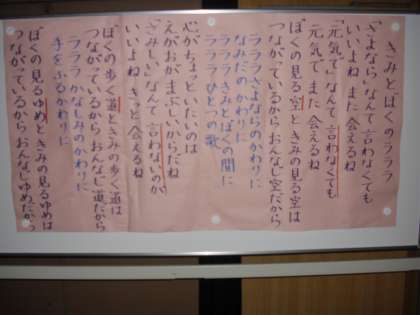 きみとぼくのラララ
「さよなら」なんて言わなくても
いいよね また会えるね
「元気で」なんて言わなくても
元気で また会えるね
ぼくの見る空ときみの見る空は
つながっているから おんなじ空だから
ラララ さよならのかわりに
なみだのかわりに
ラララ きみとぼくの間に
ラララ ひとつの歌
心がちょっといたいのは
えがおがまぶしいからだね
「さみしい」なんて言わないのが
いいよね きっと会えるね
ぼくの歩く道ときみの歩く道は
つながっているから おんなじ道だから
ラララ かなしみのかわりに
手をふるかわりに
ぼくの見るゆめときみの見るゆめは
つながっているから おんなじゆめだから